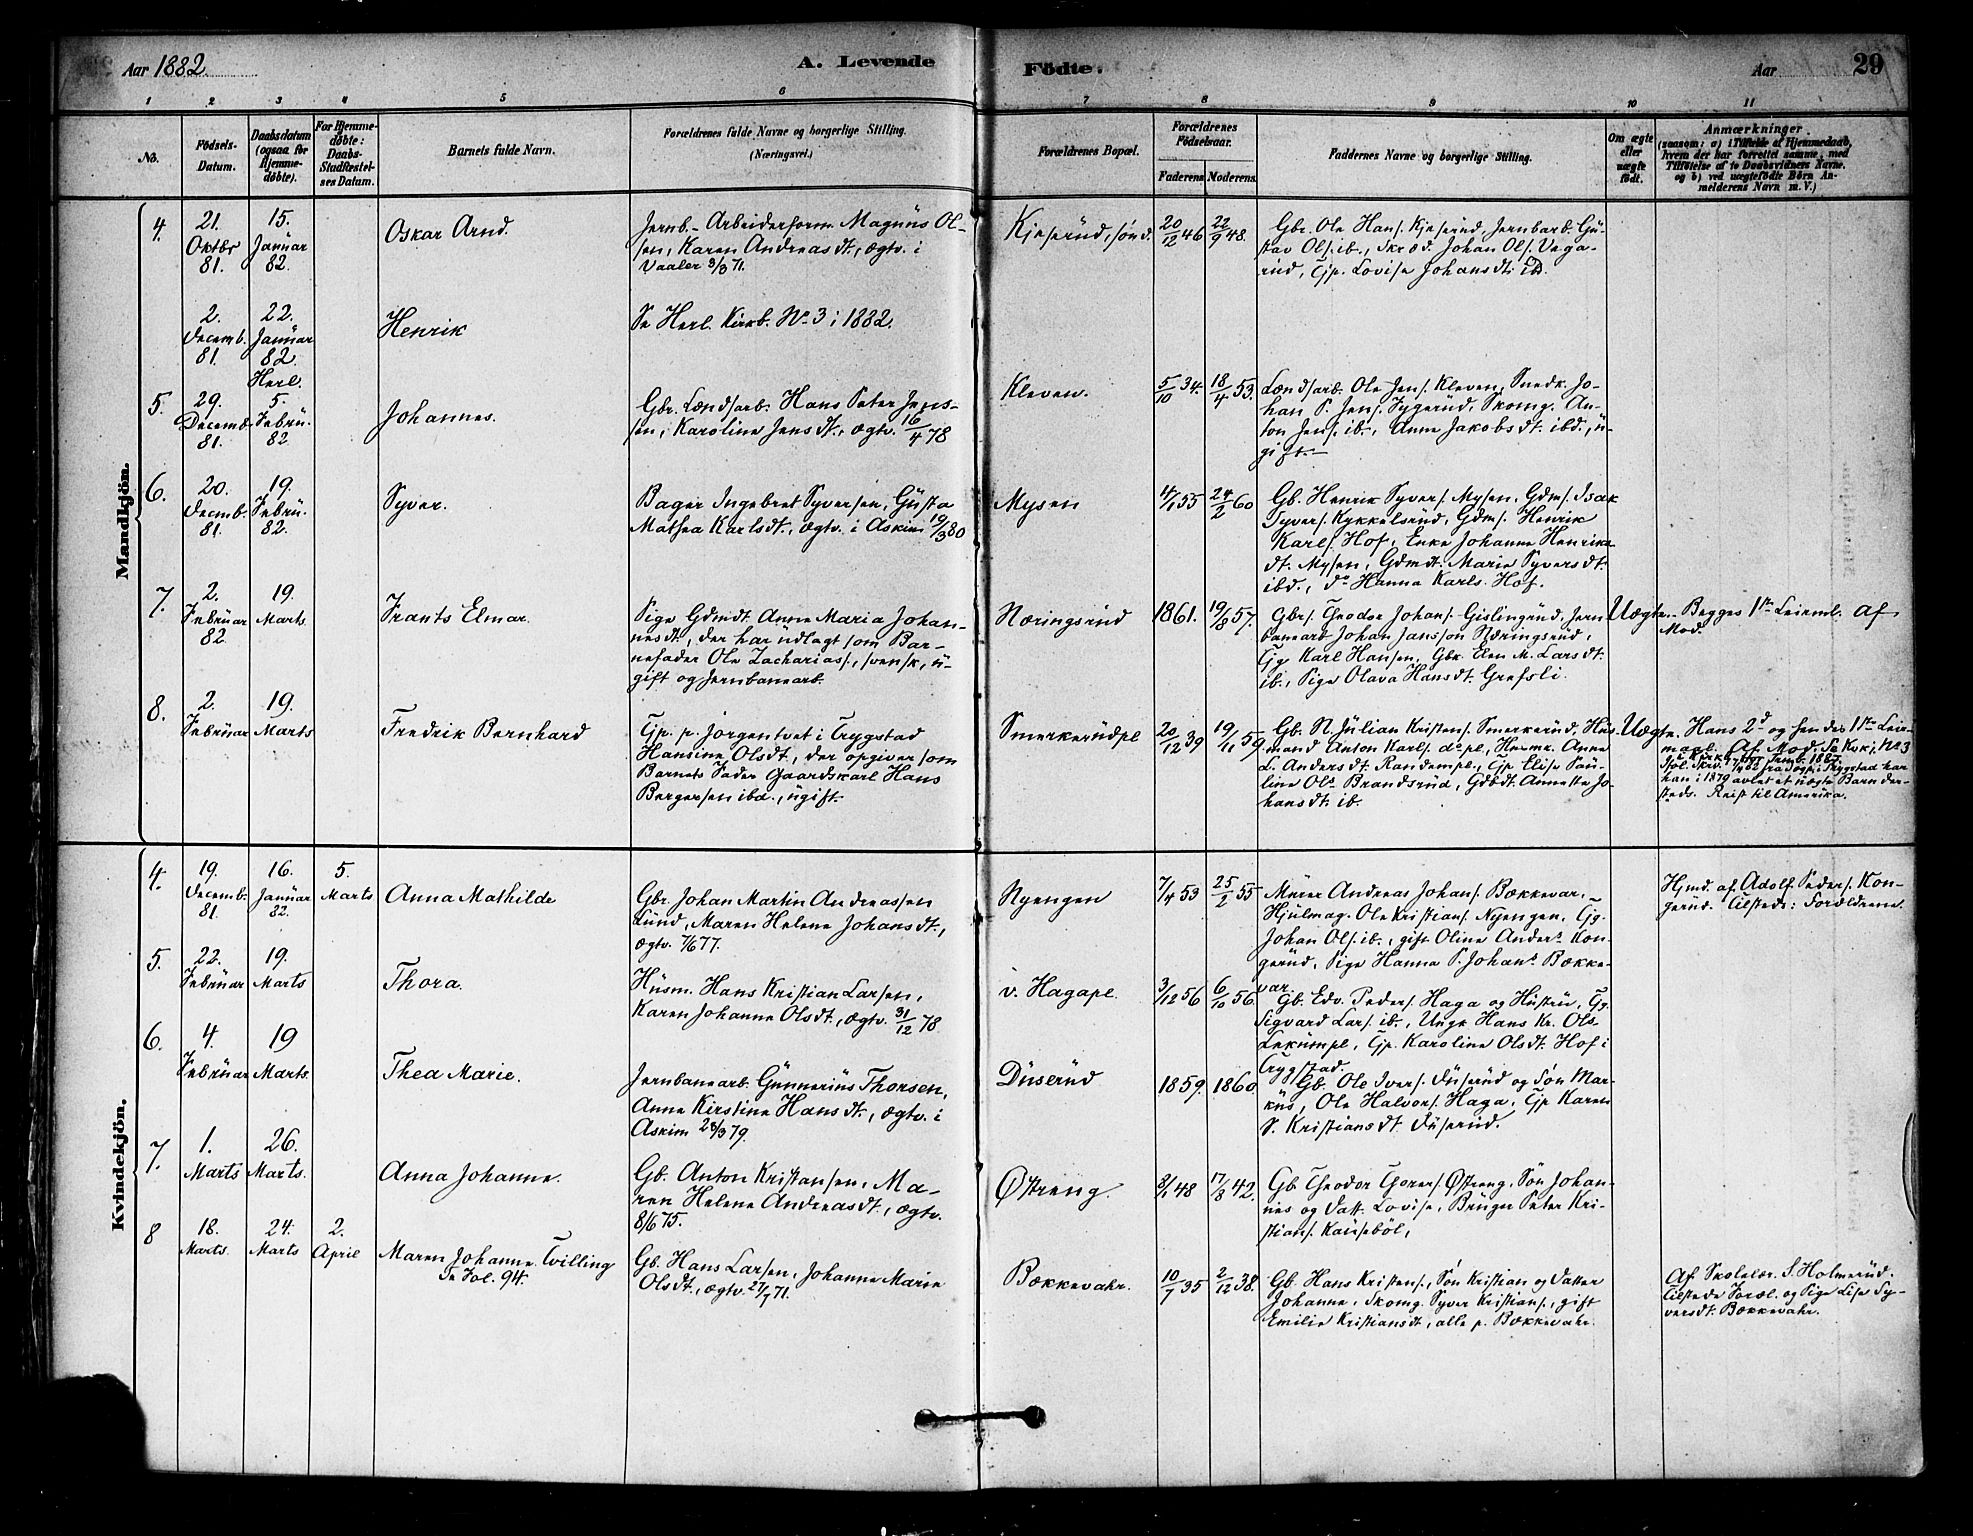 Aar 1882.
A. Levende
Fødte.
Aar
29
1 2 3 4 5 6 7 8 9 10 11
No.
Fødsels-
Datum.
Daabsdatum
(ogsaa for
Hjemme-
døbte).
For Hjemme-
døbte:
Daabs-
Stadfæstel-
ses Datum.
Barnets fulde Navn.
Forældrenes fulde Navne og borgerlige Stilling.
(Næringsvei.)
Forældrenes Bopæl.
Forældrenes
Fødselsaar.
Faderens
Moderens.
Faddernes Navne og borgerlige Stilling.
Om ægte
eller
uægte
født.
Anmærkninger
(saasom: a) i Tilfælde af Hjemmedaab,
hvem der har forrettet samme, med
Tilføielse af to Daabsvidners Navne,
og b) ved uægtefødte Børn An-
melderens Navn m. V.)
Mandkjøn.
4.
21.
Oktbr
81.
15.
Januar
82.
Oskar Arnd.
Jernb.-Arbeiderform. Magnus Ol-
sen, Karen Andreasdt., ægtv. i
Vaaler 3/3 71.
Kjeserud, sønd.
20/12 46
22/9 48.
Gbr. Ole Hans. Kjeserud, Jernbarb. Gu-
stav Ols. ib., Skræd. Johan Ols. Vega-
rud, Tjp. Lovise Johansdt. ib.
2.
Decemb.
81.
22.
Januar
82.
Herl.
Henrik
Se Herl. Kirkb. No 3 i 1882.
5.
29.
Decemb.
81.
5.
Febru.
82.
Johannes.
Gbr. Lændsarb. Hans Peter Jens-
sen, Karoline Jensdt., ægtv. 16/4 78
Kleven.
5/10 34.
18/4 53.
Lændsarb. Ole Jens. Kleven, Snedk. Jo-
han P. Jens. Sygerud, Skomg. An-
ton Jens. ib., Anne Jakobsdt. ibd., u-
gift.
6.
20.
Decmb.
81.
19.
Febru.
82.
Syver.
Bager Ingebret Syversen, Gusta
Mathea Karlsdt., ægtv. i Askim 19/3 80
Mysen
4/1 55
24/2 60
Gb. Henrik Syvers. Mysen, Gdms. Isak
Syvers. Kykkelsrud, Gdms. Henrik
Karls. Hof, Enke Johanne Henriks-
dt. Mysen, Gdmdt. Marie Syversdt.
ibd., do Hanna Karls. Hof.
7.
2.
Februar
82.
19.
Marts.
Frants Elmar.
Pige Gdmdt. Anne Maria Johan-
nesdt., der har udlagt som Bar-
nefader Ole Zacharias., svensk, u-
gift og Jernbanearb.
Næringsrud
1861.
19/8 57.
Gbrs. Theodor Johans. Gislingrud, Jern-
banearb. Johan Jansson Næringsrud,
Tjg. Karl Hansen, Gbk. Elen M. Larsdt.
ib., Pige Olava Hansdt. Grefsli.
Uægte.
Begges 1ste Leierml. Af
Mod.
8.
2.
Februar
19.
Marts
Fredrik Bernhard
Tjp. p. Jørgentvet i Trygstad
Hansine Olsdt., der opgiver som
Barnets Fader Gaardskarl Hans
Bergersen ibd., ugift.
Smerkerudpl.
20/12 39
19/11 59.
Gb. N. Julian Kristens. Smerkerud, Hus-
mand Anton Karls. do pl., Husmk. Anne
L. Andersdt. Randempl., Tjp. Elise Pau-
line Ols. Brandsrud, Gdbdt. Annette Jo-
hansdt. ib.
Uægte.
Hans 2d og hendes 1ste Leier-
maal. Af Mod.
han i 1879 avlet et uægte Barn der-
steds. Reist til Amerika.
Kvindekjøn.
4.
19.
Decemb.
81.
16.
Januar
82.
5.
Marts
Anna Mathilde
Gbr. Johan Martin Andreassen
Lund, Maren Helene Johansdt.,
ægtv. 7/6 77.
Nyengen
7/4 53
25/2 55
Murer Andreas Johans. Bækkevar,
Hjulmag. Ole Kristians. Nyengen, Tjg.
Johan Ols. ib., gift Oline Anders. Kon-
gerud, Pige Hanna P. Johans. Bække-
var.
Hjmd. af Adolf Peders. Kon-
gerud. Tilstede: Forældrene.
5.
22.
Februar
19.
Marts
Thora.
Husm. Hans Kristian Larsen,
Karen Johanne Olsdt., ægtv. 31/12 78.
v. Hagapl.
3/12 56
6/10 56.
Gb. Edv. Peders. Haga og Hustru, Tjg.
Sigvard Lars. ib., Ungk. Hans Kr. Ols.
Lekumpl., Tjp. Karoline Olsdt. Hof i
Trygstad.
6.
4.
Februar
19
Marts.
Thea Marie.
Jernbanearb. Gunnerius Thorsen,
Anne Kirstine Hansdt., ægtv. i
Askim 28/3 79.
Duserud
1859.
1860.
Gb. Ole Ivers. Duserud og Søn Mar-
kus, Ole Halvors. Haga, Tjp. Karen
S. Kristiansdt. Duserud.
7.
1.
Marts
26.
Marts.
Anna Johanne.
Gb. Anton Kristansen, Ma-
ren Helene Andreasdt., ægtv.
8/6 75.
Østreng.
8/1 48
17/8 42.
Gb. Theodor Thorers. Østreng, Søn Johan-
nes og Datt. Lovise, Bruger Peter Kri-
stians. Kauseböl,
8
18.
Marts.
24.
Marts
2.
April
Maren Johanne. Tvilling
Se Fol. 94.
Gb. Hans Larsen, Johanne Marie
Olsdt., ægtv. 27/7 71.
Bækkevahr.
10/7 35
2/12 38.
Gb. Hans Kristens., Søn Kristian og Datter
Johanne, Skomg. Syver Kristians., gift
Emilie Kristiansdt, alle p. Bækkevahr.
Af Skolelær. S. Holmerud.
Tilstede Foræl. og Pige Lise Sy-
versdt. Bækkevahr.